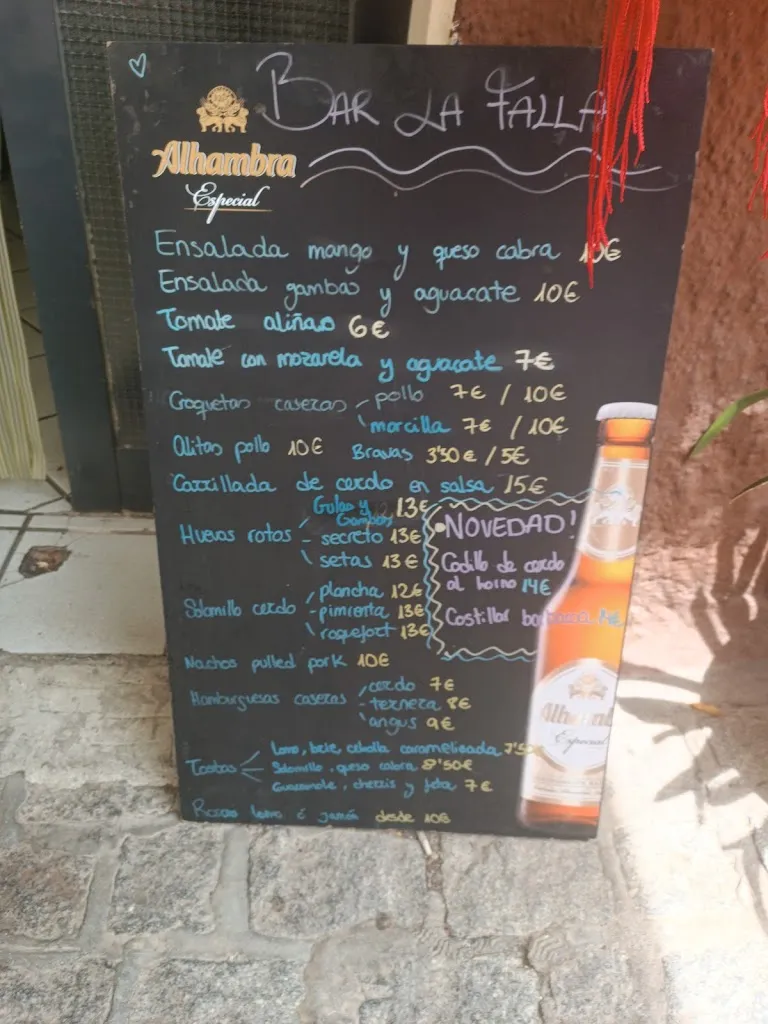 BAR LA FALLA
Alhambra
Especial
Ensalada mango y queso cabra 10€
Ensalada gambas y aguacate 10€
Tomate aliñao 6€
Tomate con mozarela y aguacate 7€
Croquetas caseras - pollo 7€ / 10€
morcilla 7€ / 10€
Alitas pollo 10€ Bravas 3'50€ / 5€
Carrillada de cerdo en salsa 15€
Huevos rotos
Gulas y Gambas 13€
- secreto 13€
setas 13€
Solomillo cerdo
plancha 12€
- pimienta 13€
roquefort 13€
NOVEDAD!
Codillo de cerdo
al horno 14€
Costillar barbacoa 14€
Nachos pulled pork 10€
Hamburguesas caseras
cerdo 7€
- ternera 8€
angus 9€
Tostas
Lomo, brie, cebolla caramelizada 7'50€
Solomillo, queso cabra 8'50€
Guacamole, cherris y feta 7€
Rosca lomo ó jamón desde 10€
Alhambra
Especial